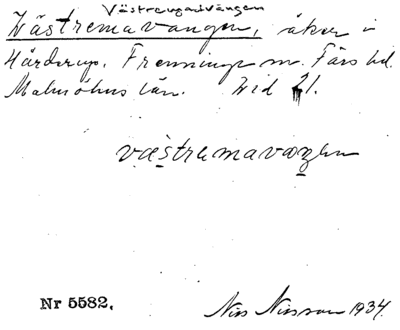 Västregårdvången
Wästremavången, åker i
Hårderup. Frenninge sn. Färs hd.
Malmöhus län. Wid 21.
västremavaŋen
Nr 5582.
Nils Nilsson 1934.